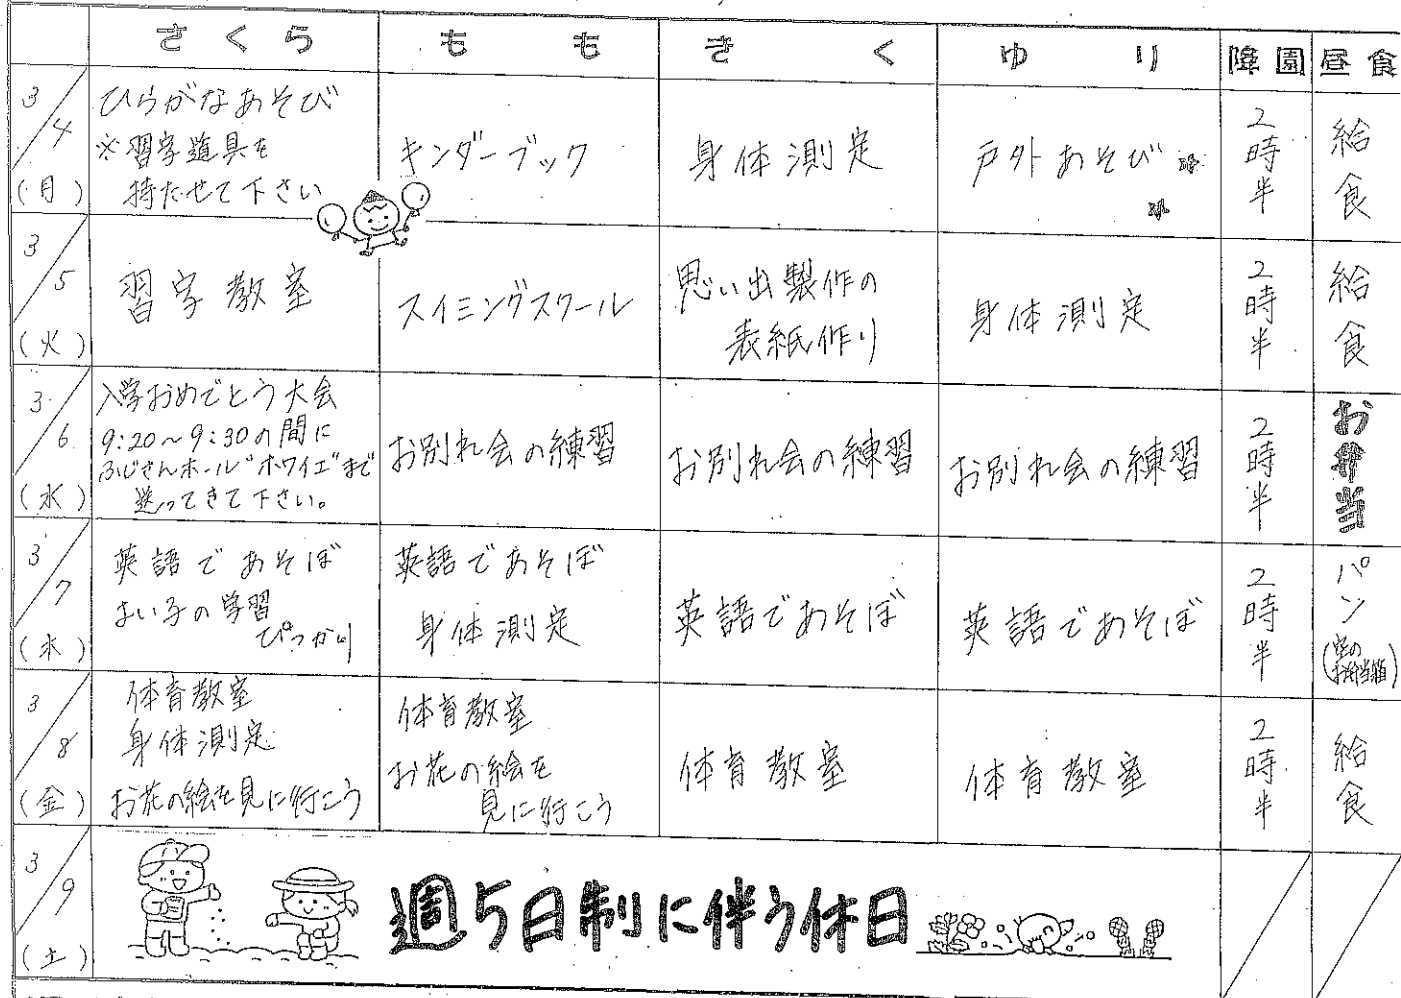 さくら もも きく ゆり 降園 昼食
3/4 (月)
ひらがなあそび
※習字道具を
持たせて下さい
キンダーブック
身体測定
戸外あそび
2時半
給食
3/5 (火)
習字教室
スイミングスクール
思い出製作の
表紙作り
身体測定
2時半
給食
3/6 (水)
入学おめでとう大会
9:20～9:30の間に
ふじさんホール"ホワイエ"まで
送ってきて下さい。
お別れ会の練習
お別れ会の練習
お別れ会の練習
2時半
お弁当
3/7 (木)
英語であそぼ
よい子の学習
ぴっかり
英語であそぼ
身体測定
英語であそぼ
英語であそぼ
2時半
パン
(空の
お弁当箱)
3/8 (金)
体育教室
身体測定
お花の絵を見に行こう
体育教室
お花の絵を
見に行こう
体育教室
体育教室
2時半
給食
3/9 (土)
週5日制に伴う休日